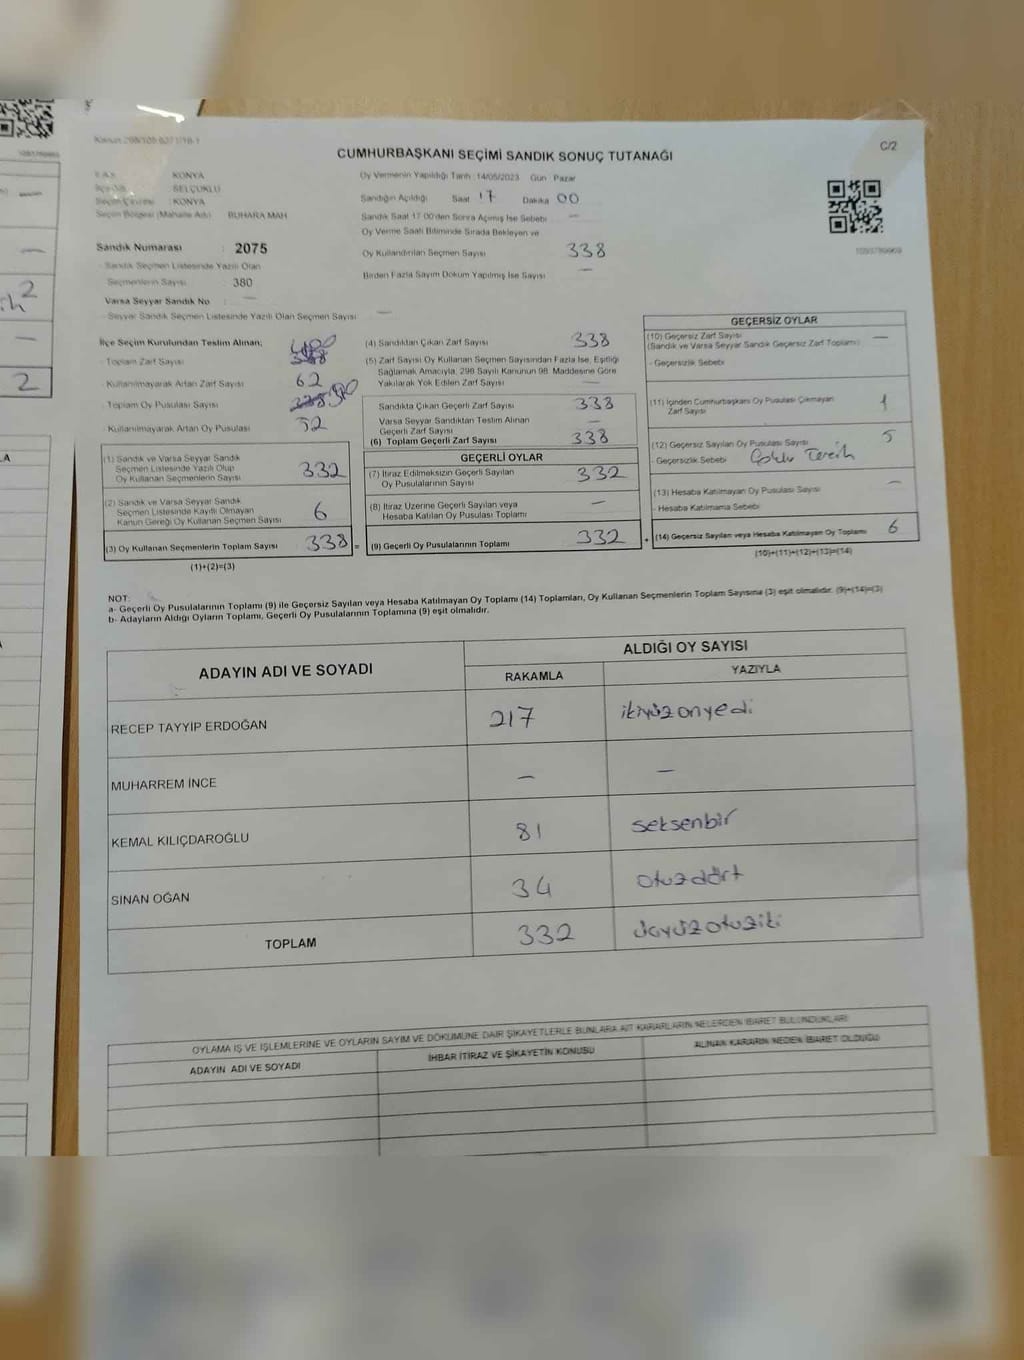 Kanun:298/105 6271/18-1
C/2
CUMHURBAŞKANI SEÇİMİ SANDIK SONUÇ TUTANAĞI
KONYA
SELÇUKLU
Seçim Çevresi : KONYA
Seçim Bölgesi (Mahalle Adı) BUHARA MAH
Sandık Numarası : 2075
- Sandık Seçmen Listesinde Yazılı Olan
Seçmenlerin Sayısı : 380
Varsa Seyyar Sandık No : —
- Seyyar Sandık Seçmen Listesinde Yazılı Olan Seçmen Sayısı : —
Oy Vermenin Yapıldığı Tarih :14/05/2023 Gün Pazar
Sandığın Açıldığı Saat 17 Dakika 00
Sandık Saat 17.00'den Sonra Açılmış İse Sebebi —
Oy Verme Saati Bitiminde Sırada Bekleyen ve
Oy Kullandırılan Seçmen Sayısı 338
Birden Fazla Sayım Döküm Yapılmış İse Sayısı —
İlçe Seçim Kurulundan Teslim Alınan;
- Toplam Zarf Sayısı 400
- Kullanılmayarak Artan Zarf Sayısı 62
- Toplam Oy Pusulası Sayısı
- Kullanılmayarak Artan Oy Pusulası 52
(1) Sandık ve Varsa Seyyar Sandık
Seçmen Listesinde Yazılı Olup
Oy Kullanan Seçmenlerin Sayısı 332
(2) Sandık ve Varsa Seyyar Sandık
Seçmen Listesinde Kayıtlı Olmayan
Kanun Gereği Oy Kullanan Seçmen Sayısı 6
(3) Oy Kullanan Seçmenlerin Toplam Sayısı 338 =
(1)+(2)=(3)
(4) Sandıktan Çıkan Zarf Sayısı 338
(5) Zarf Sayısı Oy Kullanan Seçmen Sayısından Fazla İse, Eşitliği
Sağlamak Amacıyla, 298 Sayılı Kanunun 98. Maddesine Göre
Yakılarak Yok Edilen Zarf Sayısı —
Sandıkta Çıkan Geçerli Zarf Sayısı 338
Varsa Seyyar Sandıktan Teslim Alınan
Geçerli Zarf Sayısı —
(6) Toplam Geçerli Zarf Sayısı 338
GEÇERLİ OYLAR
(7) İtiraz Edilmeksizin Geçerli Sayılan
Oy Pusulalarının Sayısı 332
(8) İtiraz Üzerine Geçerli Sayılan veya
Hesaba Katılan Oy Pusulası Toplamı —
(9) Geçerli Oy Pusulalarının Toplamı 332 +
GEÇERSİZ OYLAR
(10) Geçersiz Zarf Sayısı —
(Sandık ve Varsa Seyyar Sandık Geçersiz Zarf Toplamı)
- Geçersizlik Sebebi
(11) İçinden Cumhurbaşkanı Oy Pusulası Çıkmayan
Zarf Sayısı 1
(12) Geçersiz Sayılan Oy Pusulası Sayısı 5
- Geçersizlik Sebebi Çoklu Tercih
(13) Hesaba Katılmayan Oy Pusulası Sayısı —
- Hesaba Katılmama Sebebi
(14) Geçersiz Sayılan veya Hesaba Katılmayan Oy Toplamı 6
(10)+(11)+(12)+(13)=(14)
NOT:
a- Geçerli Oy Pusulalarının Toplamı (9) ile Geçersiz Sayılan veya Hesaba Katılmayan Oy Toplamı (14) Toplamları, Oy Kullanan Seçmenlerin Toplam Sayısına (3) eşit olmalıdır. (9)+(14)=(3)
b- Adayların Aldığı Oyların Toplamı, Geçerli Oy Pusulalarının Toplamına (9) eşit olmalıdır.
ADAYIN ADI VE SOYADI ALDIĞI OY SAYISI
RAKAMLA YAZIYLA
RECEP TAYYİP ERDOĞAN 217 ikiyüzonyedi
MUHARREM İNCE — —
KEMAL KILIÇDAROĞLU 81 seksenbir
SİNAN OĞAN 34 otuzdört
TOPLAM 332 üçyüzotuziki
OYLAMA İŞ VE İŞLEMLERİNE VE OYLARIN SAYIM VE DÖKÜMÜNE DAİR ŞİKAYETLERLE BUNLARA AİT KARARLARIN NELERDEN İBARET BULUNDUKLARI
ADAYIN ADI VE SOYADI İHBAR İTİRAZ VE ŞİKAYETİN KONUSU ALINAN KARARIN NEDEN İBARET OLDUĞU